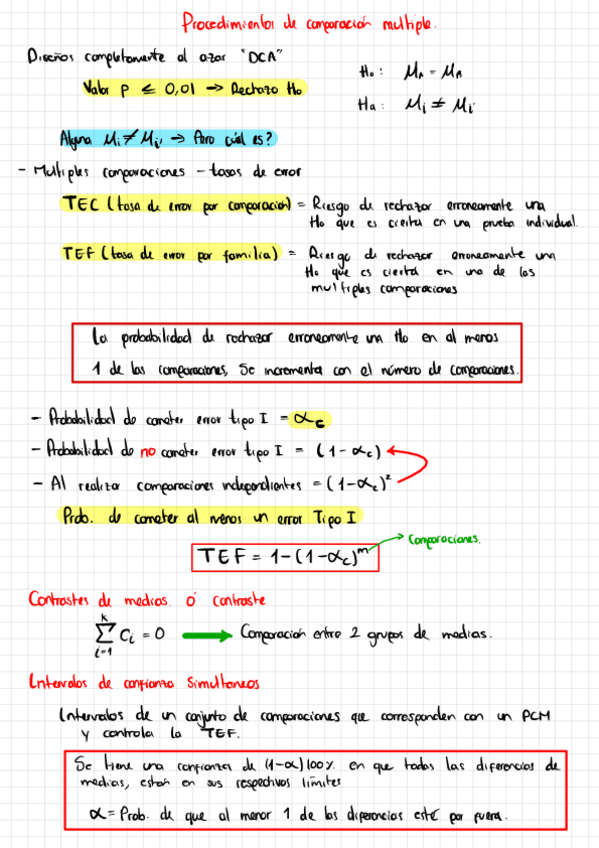 Procedimientos de comparación multiple.
Diseños completamente al azar "DCA"
Ho: μA = μA
Valor p ≤ 0,01 → Rechazo Ho
Ha: μi ≠ μi'
Alguna μi ≠ μi' → Pero cúal es?
- Multiples comparaciones - tasas de error
TEC (tasa de error por comparación) = Riesgo de rechazar erroneamente una
Ho que es cierta en una prueba individual.
TEF (tasa de error por familia) = Riesgo de rechazar erroneamente una
Ho que es cierta en una de las
multiples comparaciones
La probabilidad de rechazar erroneamente una Ho en al menos
1 de las comparaciones, se incrementa con el número de comparaciones.
- Probabilidad de cometer error tipo I = αc
- Probabilidad de no cometer error tipo I = (1-αc)
- Al realizar comparaciones independientes = (1-αc)²
Prob. de cometer al menos un error Tipo I
TEF = 1-(1-αc)^m → Comparaciones.
Contrastes de medias ó contraste
k
∑ Ci = 0 → Comparación entre 2 grupos de medias.
i=1
Intervalos de confianza simultaneos
Intervalos de un conjunto de comparaciones que corresponden con un PCM
y controla la TEF.
Se tiene una confianza de (1-α)100% en que todas las diferencias de
medias, estan en sus respectivos límites
α = Prob. de que al menor 1 de las diferencias esté por fuera.